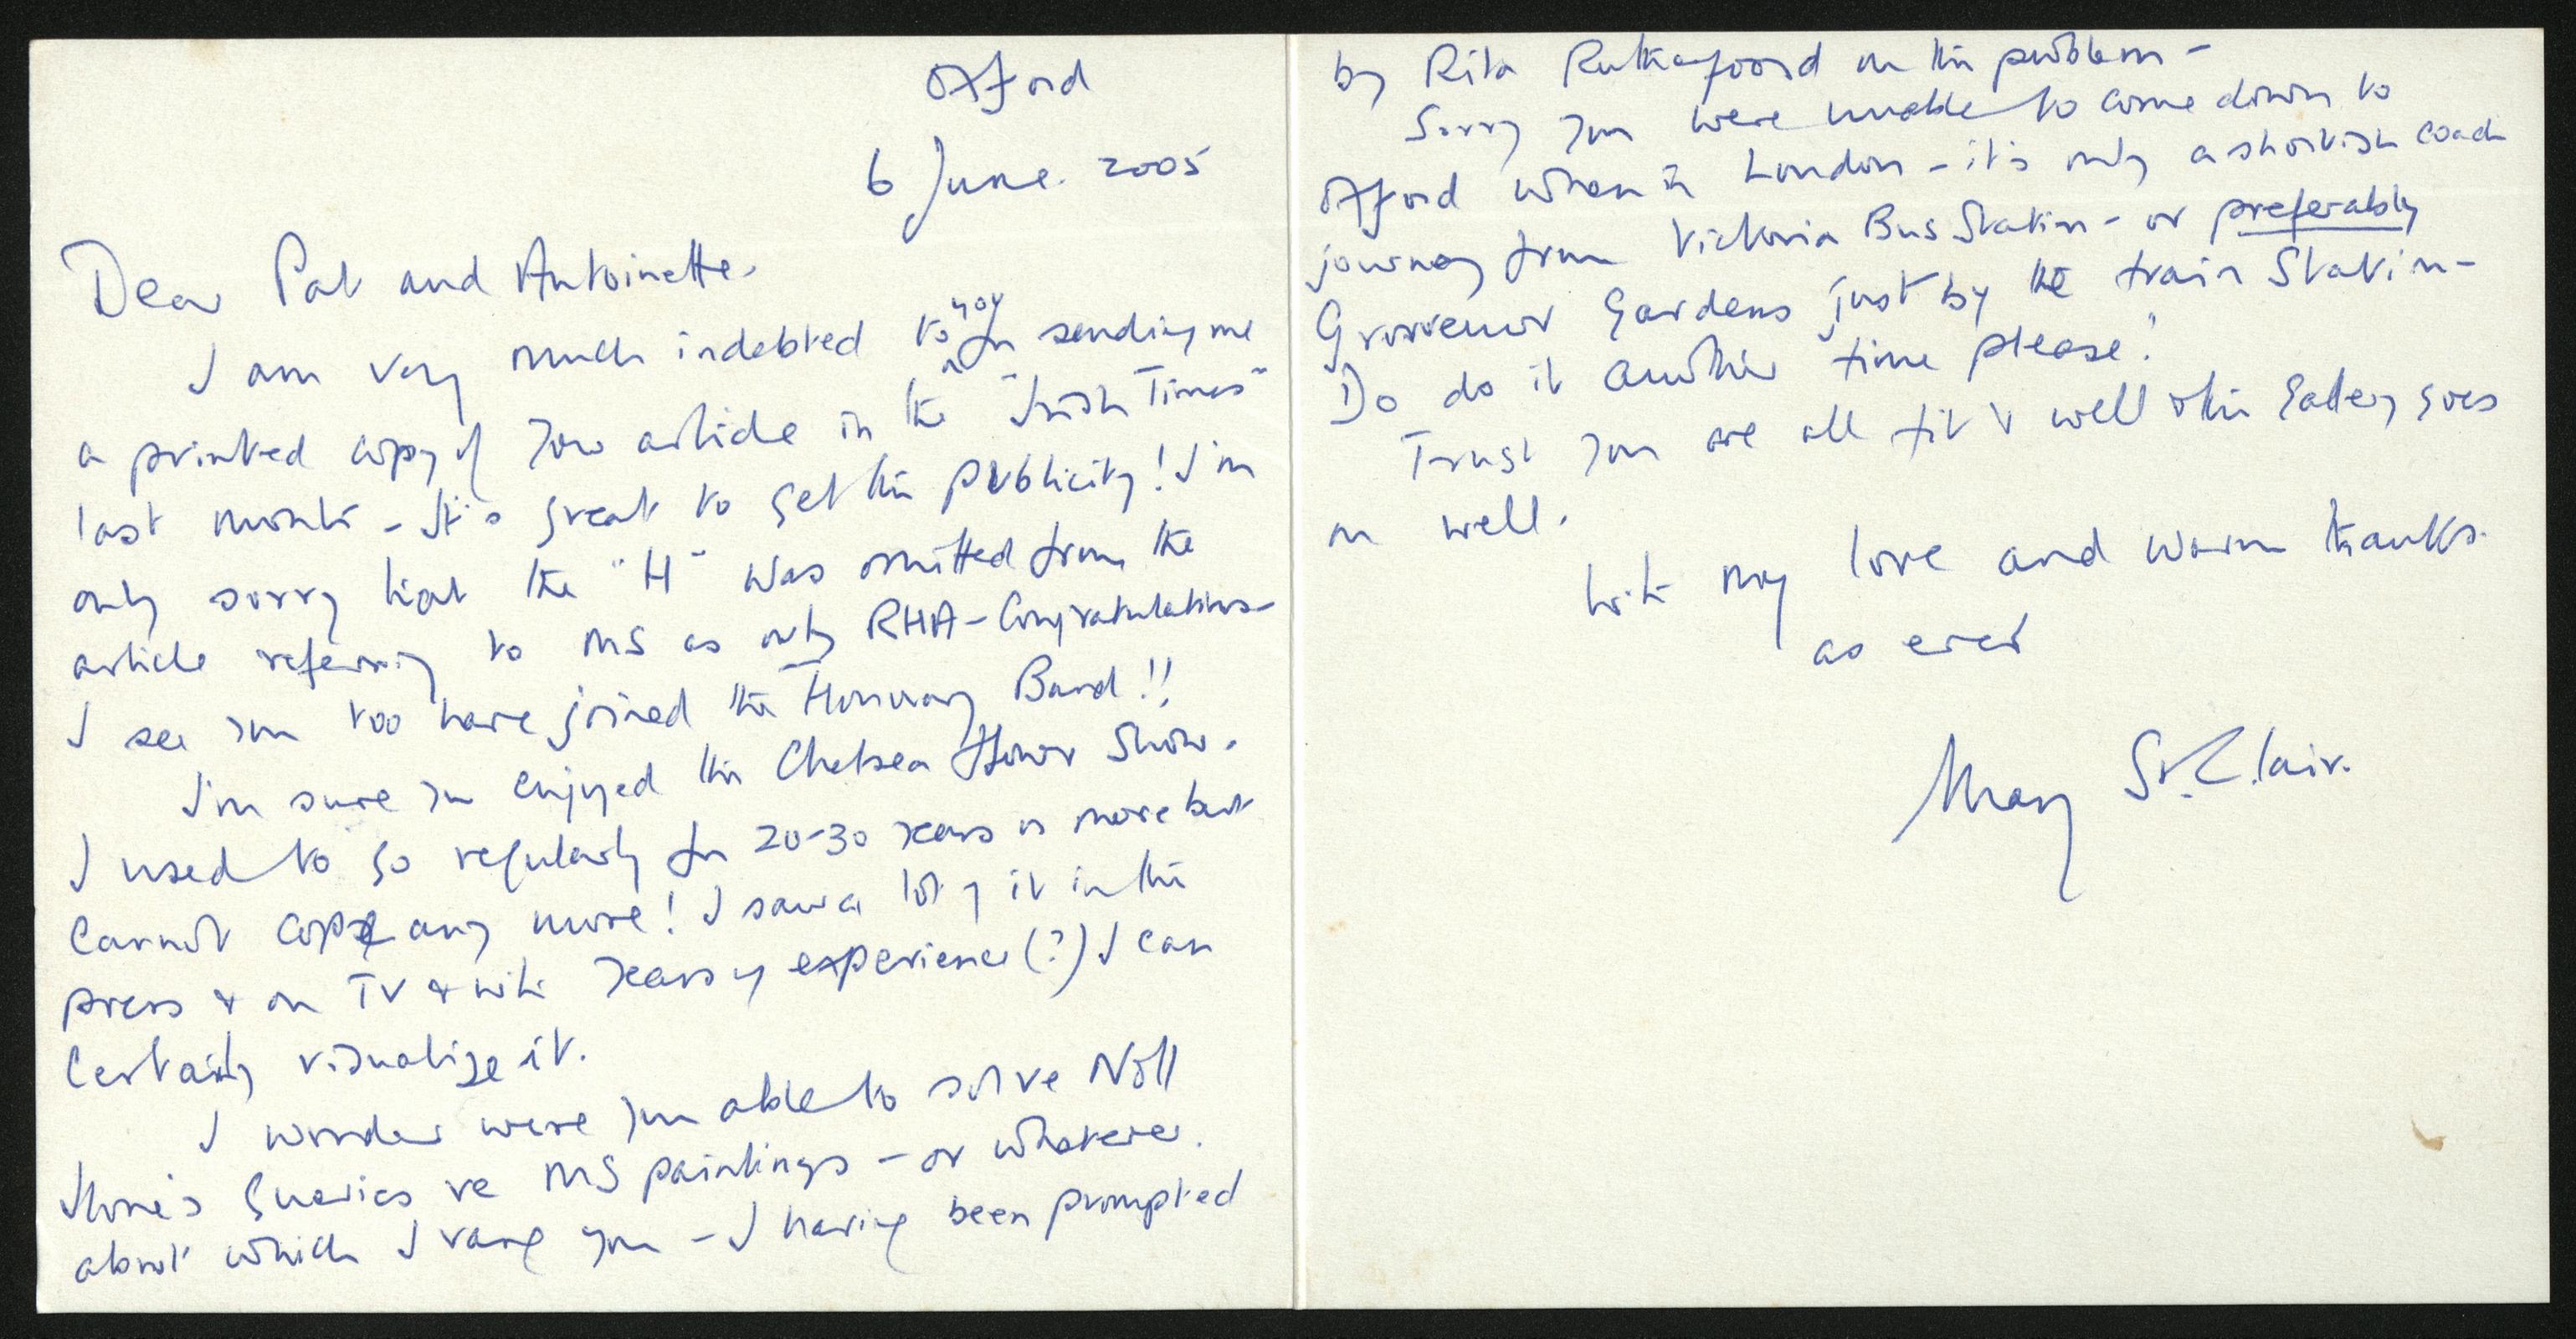 Oxford
6 June. 2005
Dear Pat and Antoinette.
I am very much indebted to you for sending me
a printed copy of your article in the "Irish Times"
last month - It's great to get the publicity! I'm
only sorry that the "H" was omitted from the
article referring to MS as only RHA - Congratulations
I see you too have joined the Honorary Band!!
I'm sure you enjoyed the Chelsea Flower Show.
I used to go regularly for 20-30 years or more but
cannot cope any more! I saw a lot of it in the
press & on TV & with years of experience (?) I can
certainly visualize it.
I wonder were you able to solve
queries re MS paintings - or whatever.
about which I rang you - I having been prompted
by Rita Rutherfoord on the problem -
Sorry you were unable to come down to
Oxford when in London - it's only a shortish coach
journey from Victoria Bus Station - or preferably
Grosvenor Gardens just by the train Station -
Do do it another time please!
Trust you are all fit & well & the Gallery goes
on well.
With my love and warm thanks.
as ever
Mary St. Clair.